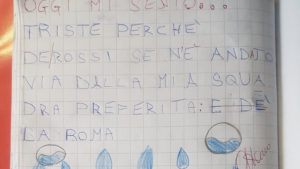 OGGI MI SENTO...
TRISTE PERCHÈ
DEROSSI SE NÈ ANDATO
VIA DALLA MIA SQUA
DRA PREFERITA: E DÈ
LA ROMA